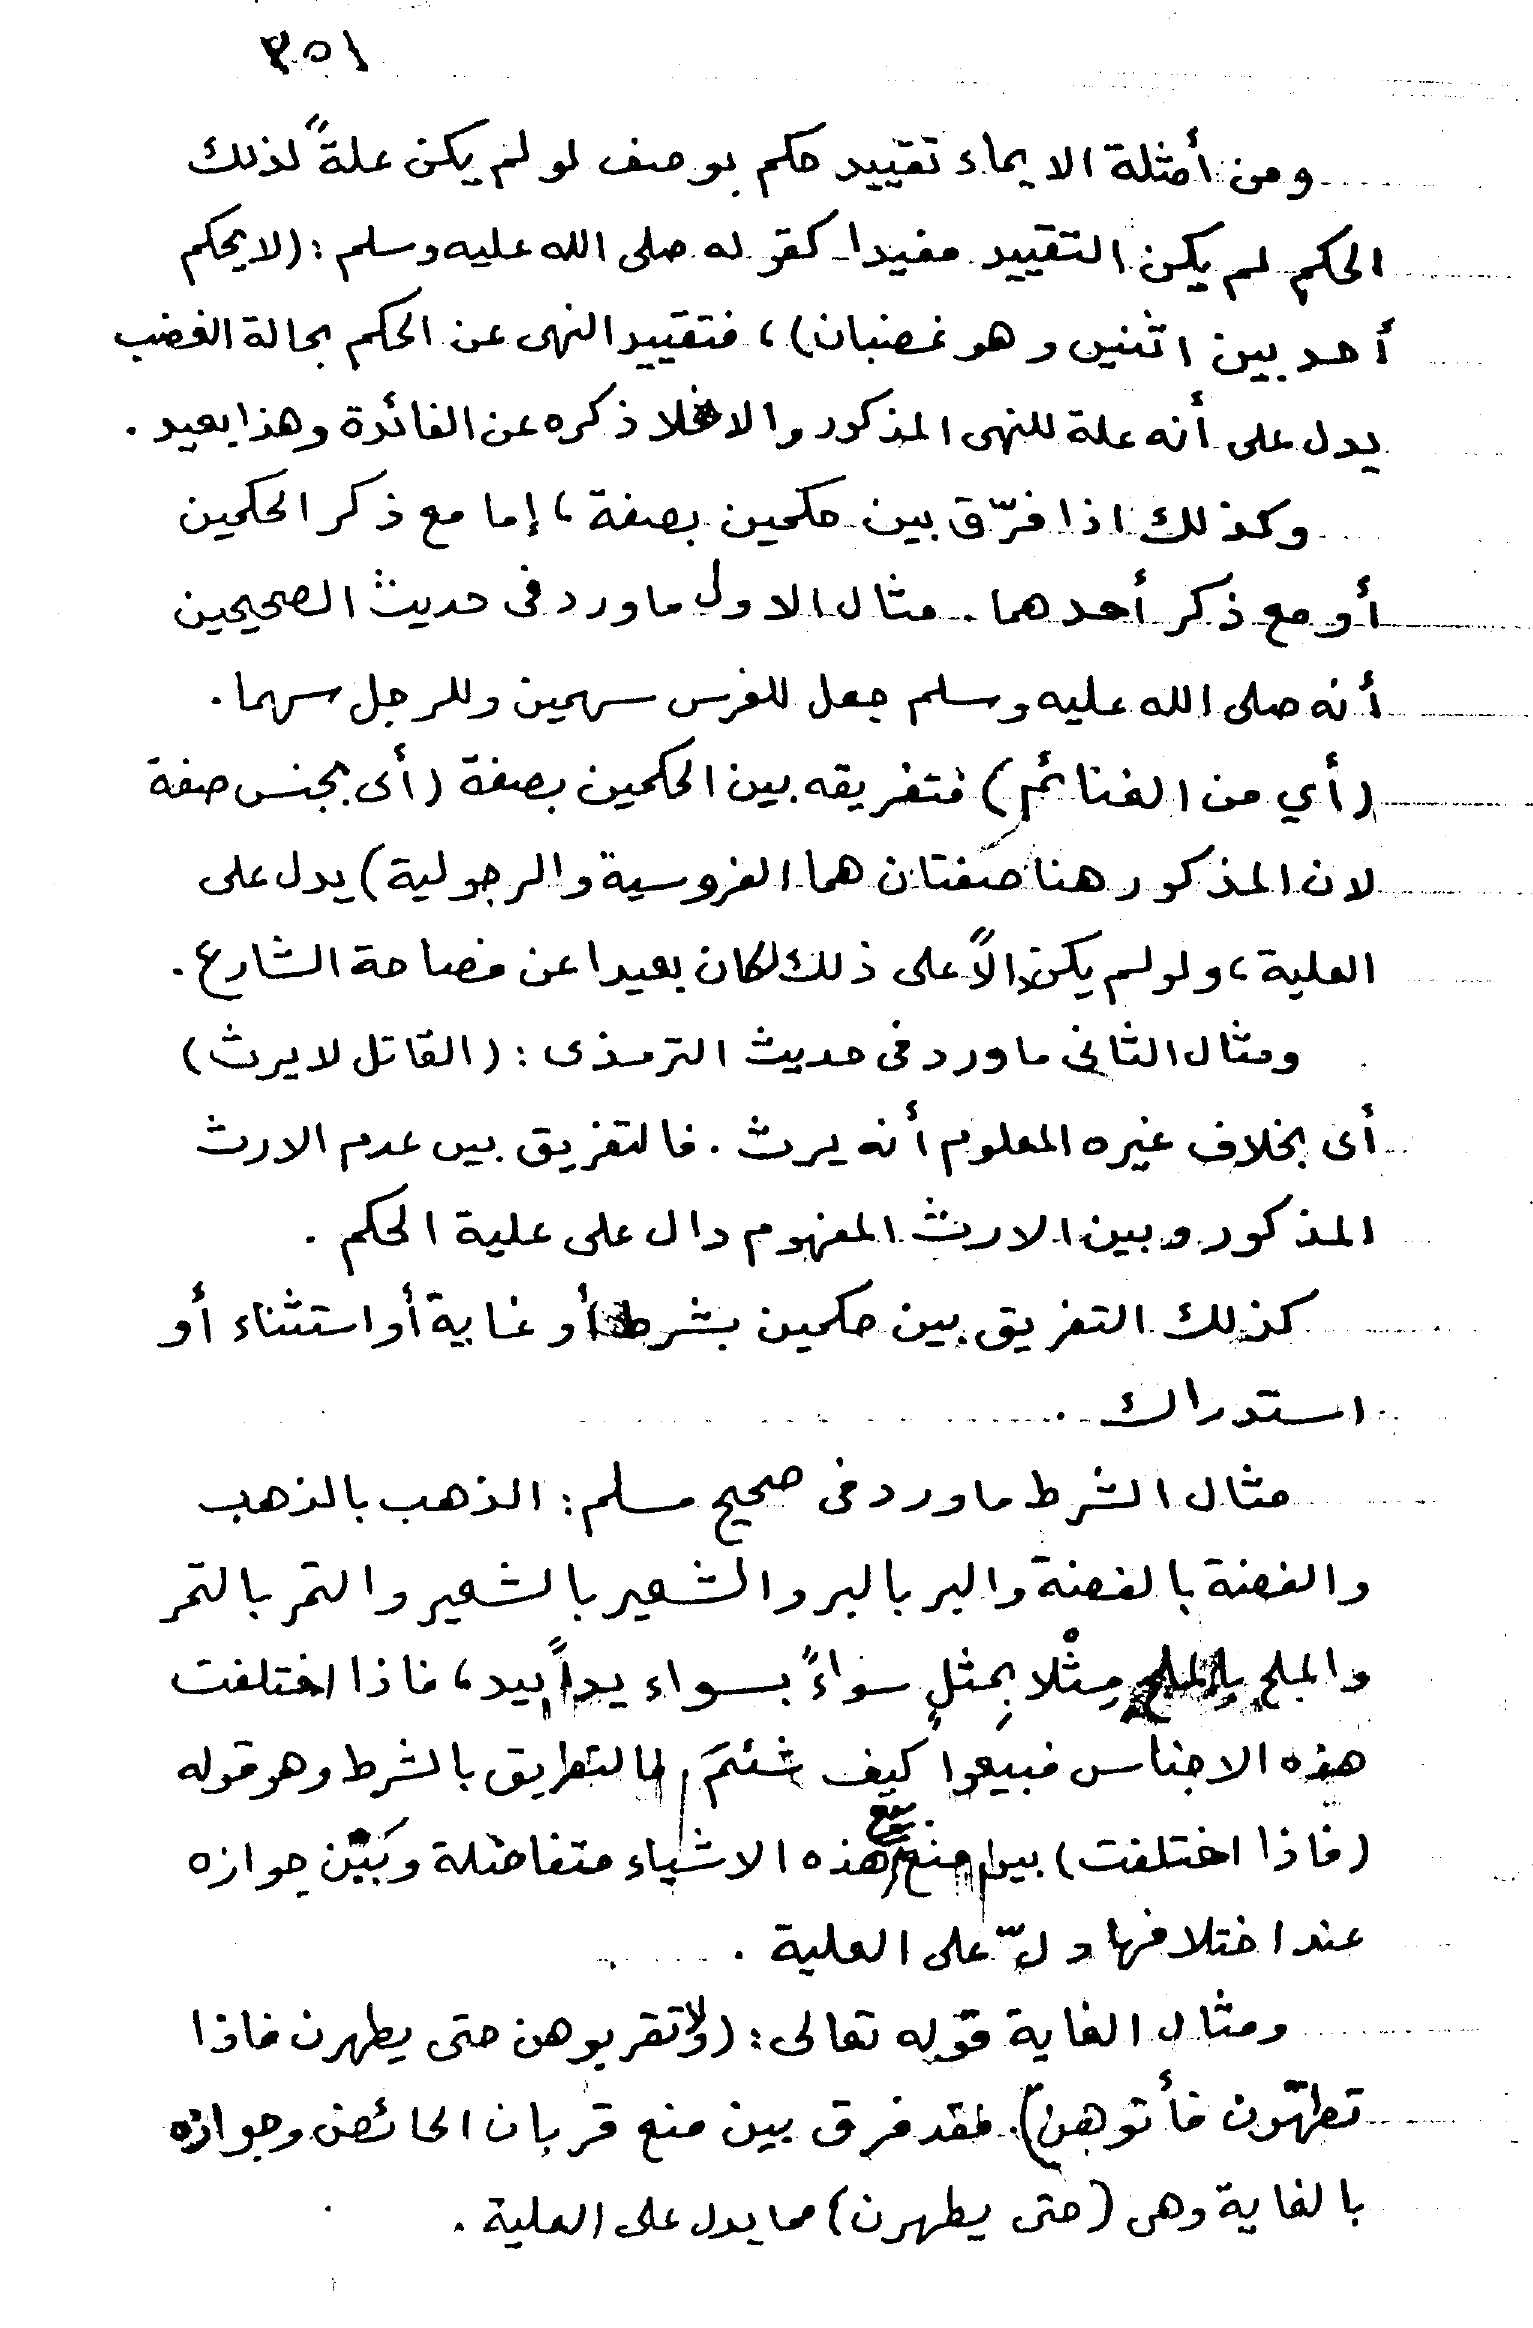 ٣٥١
ومن أمثلة الايماء تقييد حكم بوصف لو لم يكن علةً لذلك
الحكم لم يكن التقييد مفيدا كقوله صلى الله عليه وسلم : (لا يحكم
أحد بين اثنين وهو غضبان) ، فتقييد النهى عن الحكم بحالة الغضب
يدل على أنه علة للنهى المذكور والا لخلا ذكره عن الفائدة وهذا بعيد .
وكذلك اذا فرّق بين حكمين بصفة ، إما مع ذكر الحكمين
أو مع ذكر أحدهما . مثال الاول ما ورد فى حديث الصحيحين
أنه صلى الله عليه وسلم جعل للفرس سهمين وللرجل سهما .
(أي من الغنائم) فتفريقه بين الحكمين بصفة (أى بجنس صفة
لان المذكور هنا صفتان هما الفروسية والرجولية) يدل على
العلية ، ولو لم يكن دالاً على ذلك لكان بعيدا عن فصاحة الشارع .
ومثال الثانى ما ورد فى حديث الترمذى : (القاتل لا يرث)
أى بخلاف غيره المعلوم أنه يرث . فالتفريق بين عدم الارث
المذكور وبين الارث المفهوم دال على علية الحكم .
كذلك التفريق بين حكمين بشرط أو غاية أو استثناء أو
استدراك .
مثال الشرط ما ورد فى صحيح مسلم : الذهب بالذهب
والفضة بالفضة والبر بالبر والشعير بالشعير والتمر بالتمر
والملح بالملح مِثْلا بِمثلٍ سواءً بسواء يداً بيد ، فاذا اختلفت
هذه الاجناس فبيعوا كيف شئتم فالتفريق بالشرط وهو قوله
(فاذا اختلفت) بين منع بيع هذه الاشياء متفاضلة وبَيْن جوازه
عند اختلافها دلّ على العلية .
ومثال الغاية قوله تعالى : (ولا تقربوهن حتى يطهرن فاذا
تطهّرن فأتوهن) . فقد فرق بين منع قربان الحائض وجوازه
بالغاية وهى (حتى يطهرن) مما يدل على العلية .